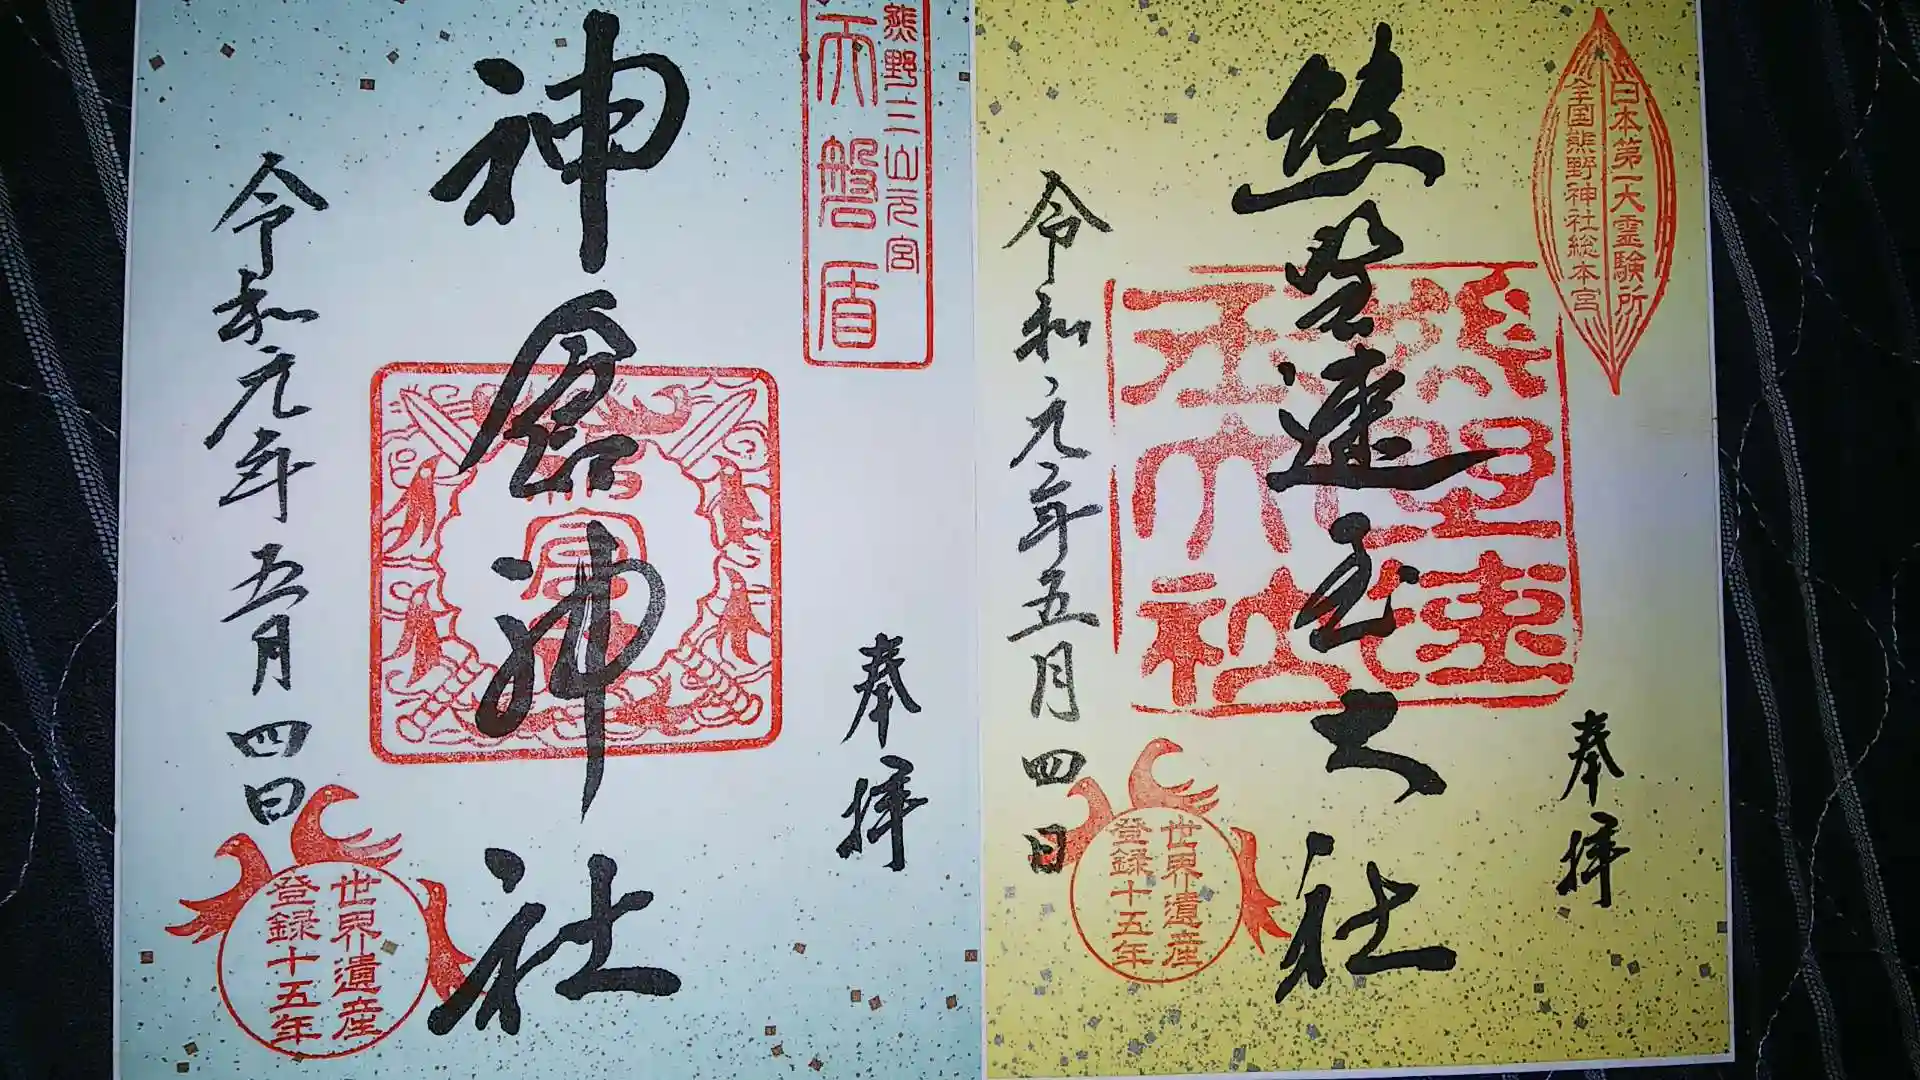 日本第一大霊験所
全国熊野神社総本宮
奉拝
熊野速玉大社
熊野速玉大社
令和元年五月四日
世界遺産
登録十五年
熊野三山元宮
天磐盾
奉拝
神倉神社
令和元年五月四日
世界遺産
登録十五年